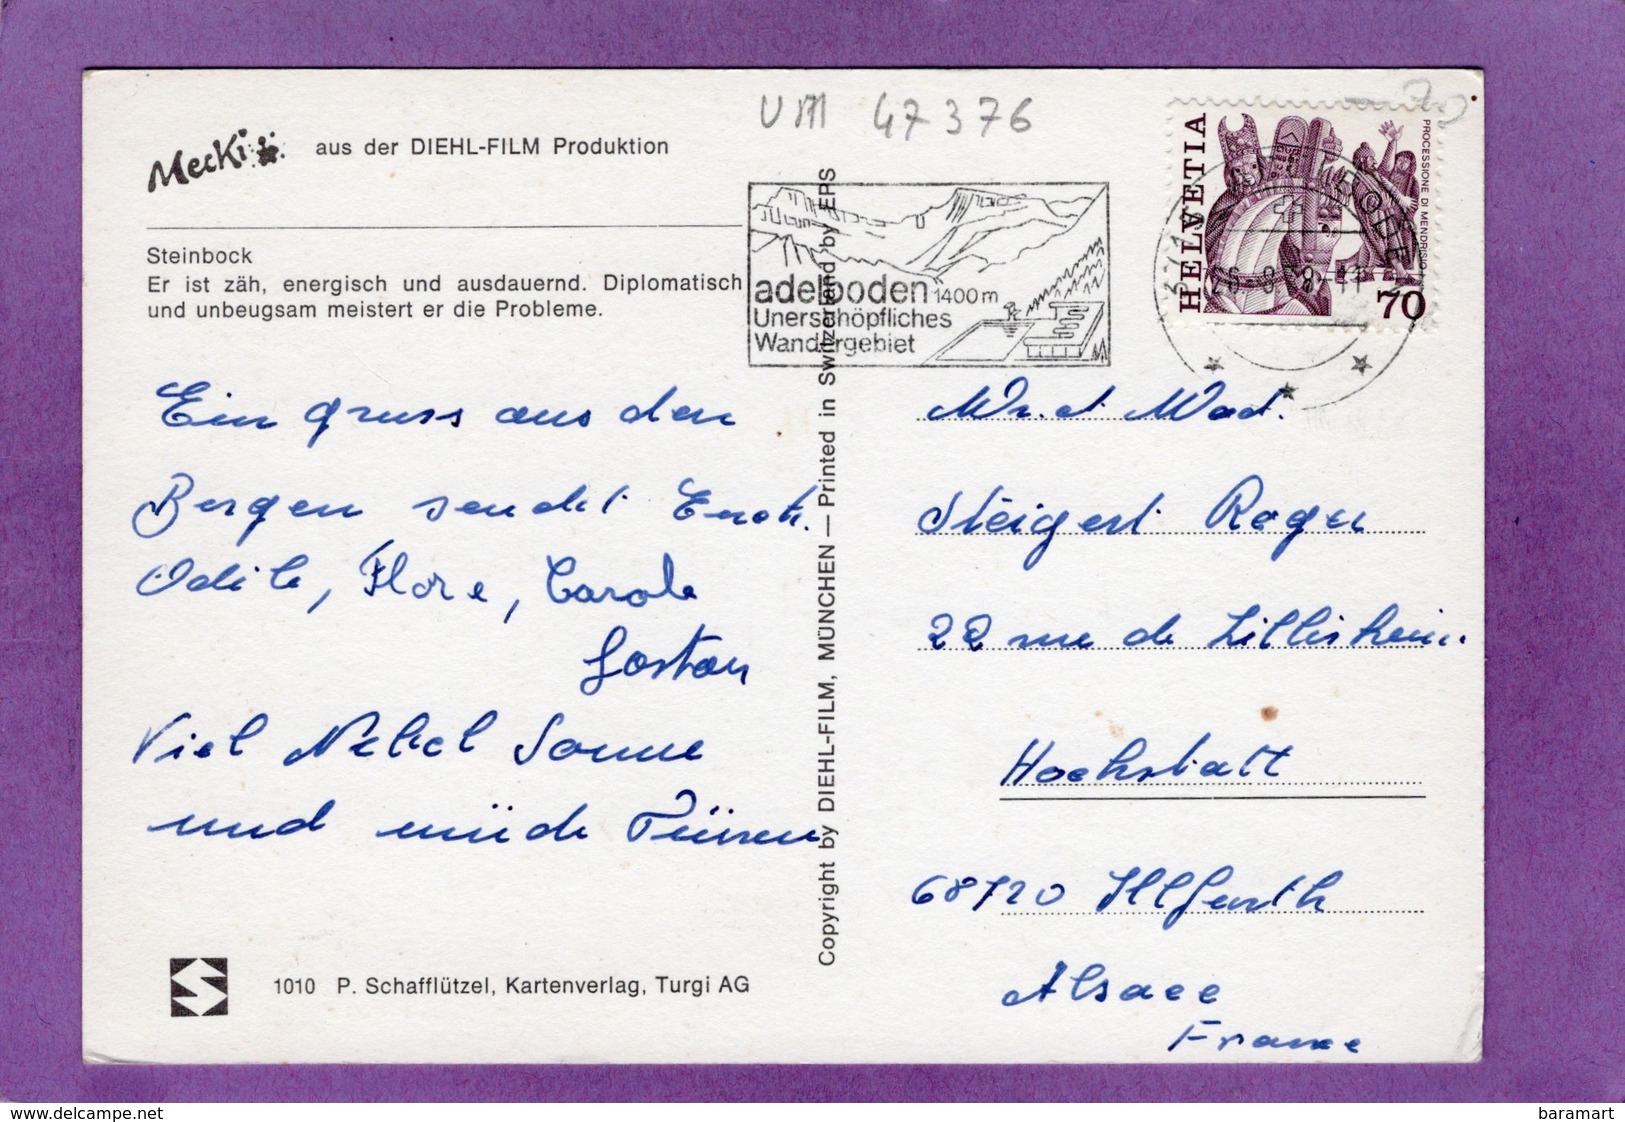 UM 47376
70
Mecki
aus der DIEHL-FILM Produktion
Steinbock
Er ist zäh, energisch und ausdauernd. Diplomatisch
und unbeugsam meistert er die Probleme.
adelboden 1400m
Unerschöpfliches
Wandergebiet
HELVETIA
PROCESSIONE DI MENDRISIO
70
3715 ADELBODEN
Ein gruss aus den
Bergen sendet Euch
Odile, Flore, Carole
Gaston
Viel Nebel Sonne
und müde Füssen
Copyright by DIEHL-FILM, MÜNCHEN — Printed in Switzerland by EPS
Mr. et Mad.
Steigert Roger
22 rue de Zillisheim
Hochstatt
68720 Illfurth
Alsace
France
1010 P. Schafflützel, Kartenverlag, Turgi AG
www.delcampe.net
baramart